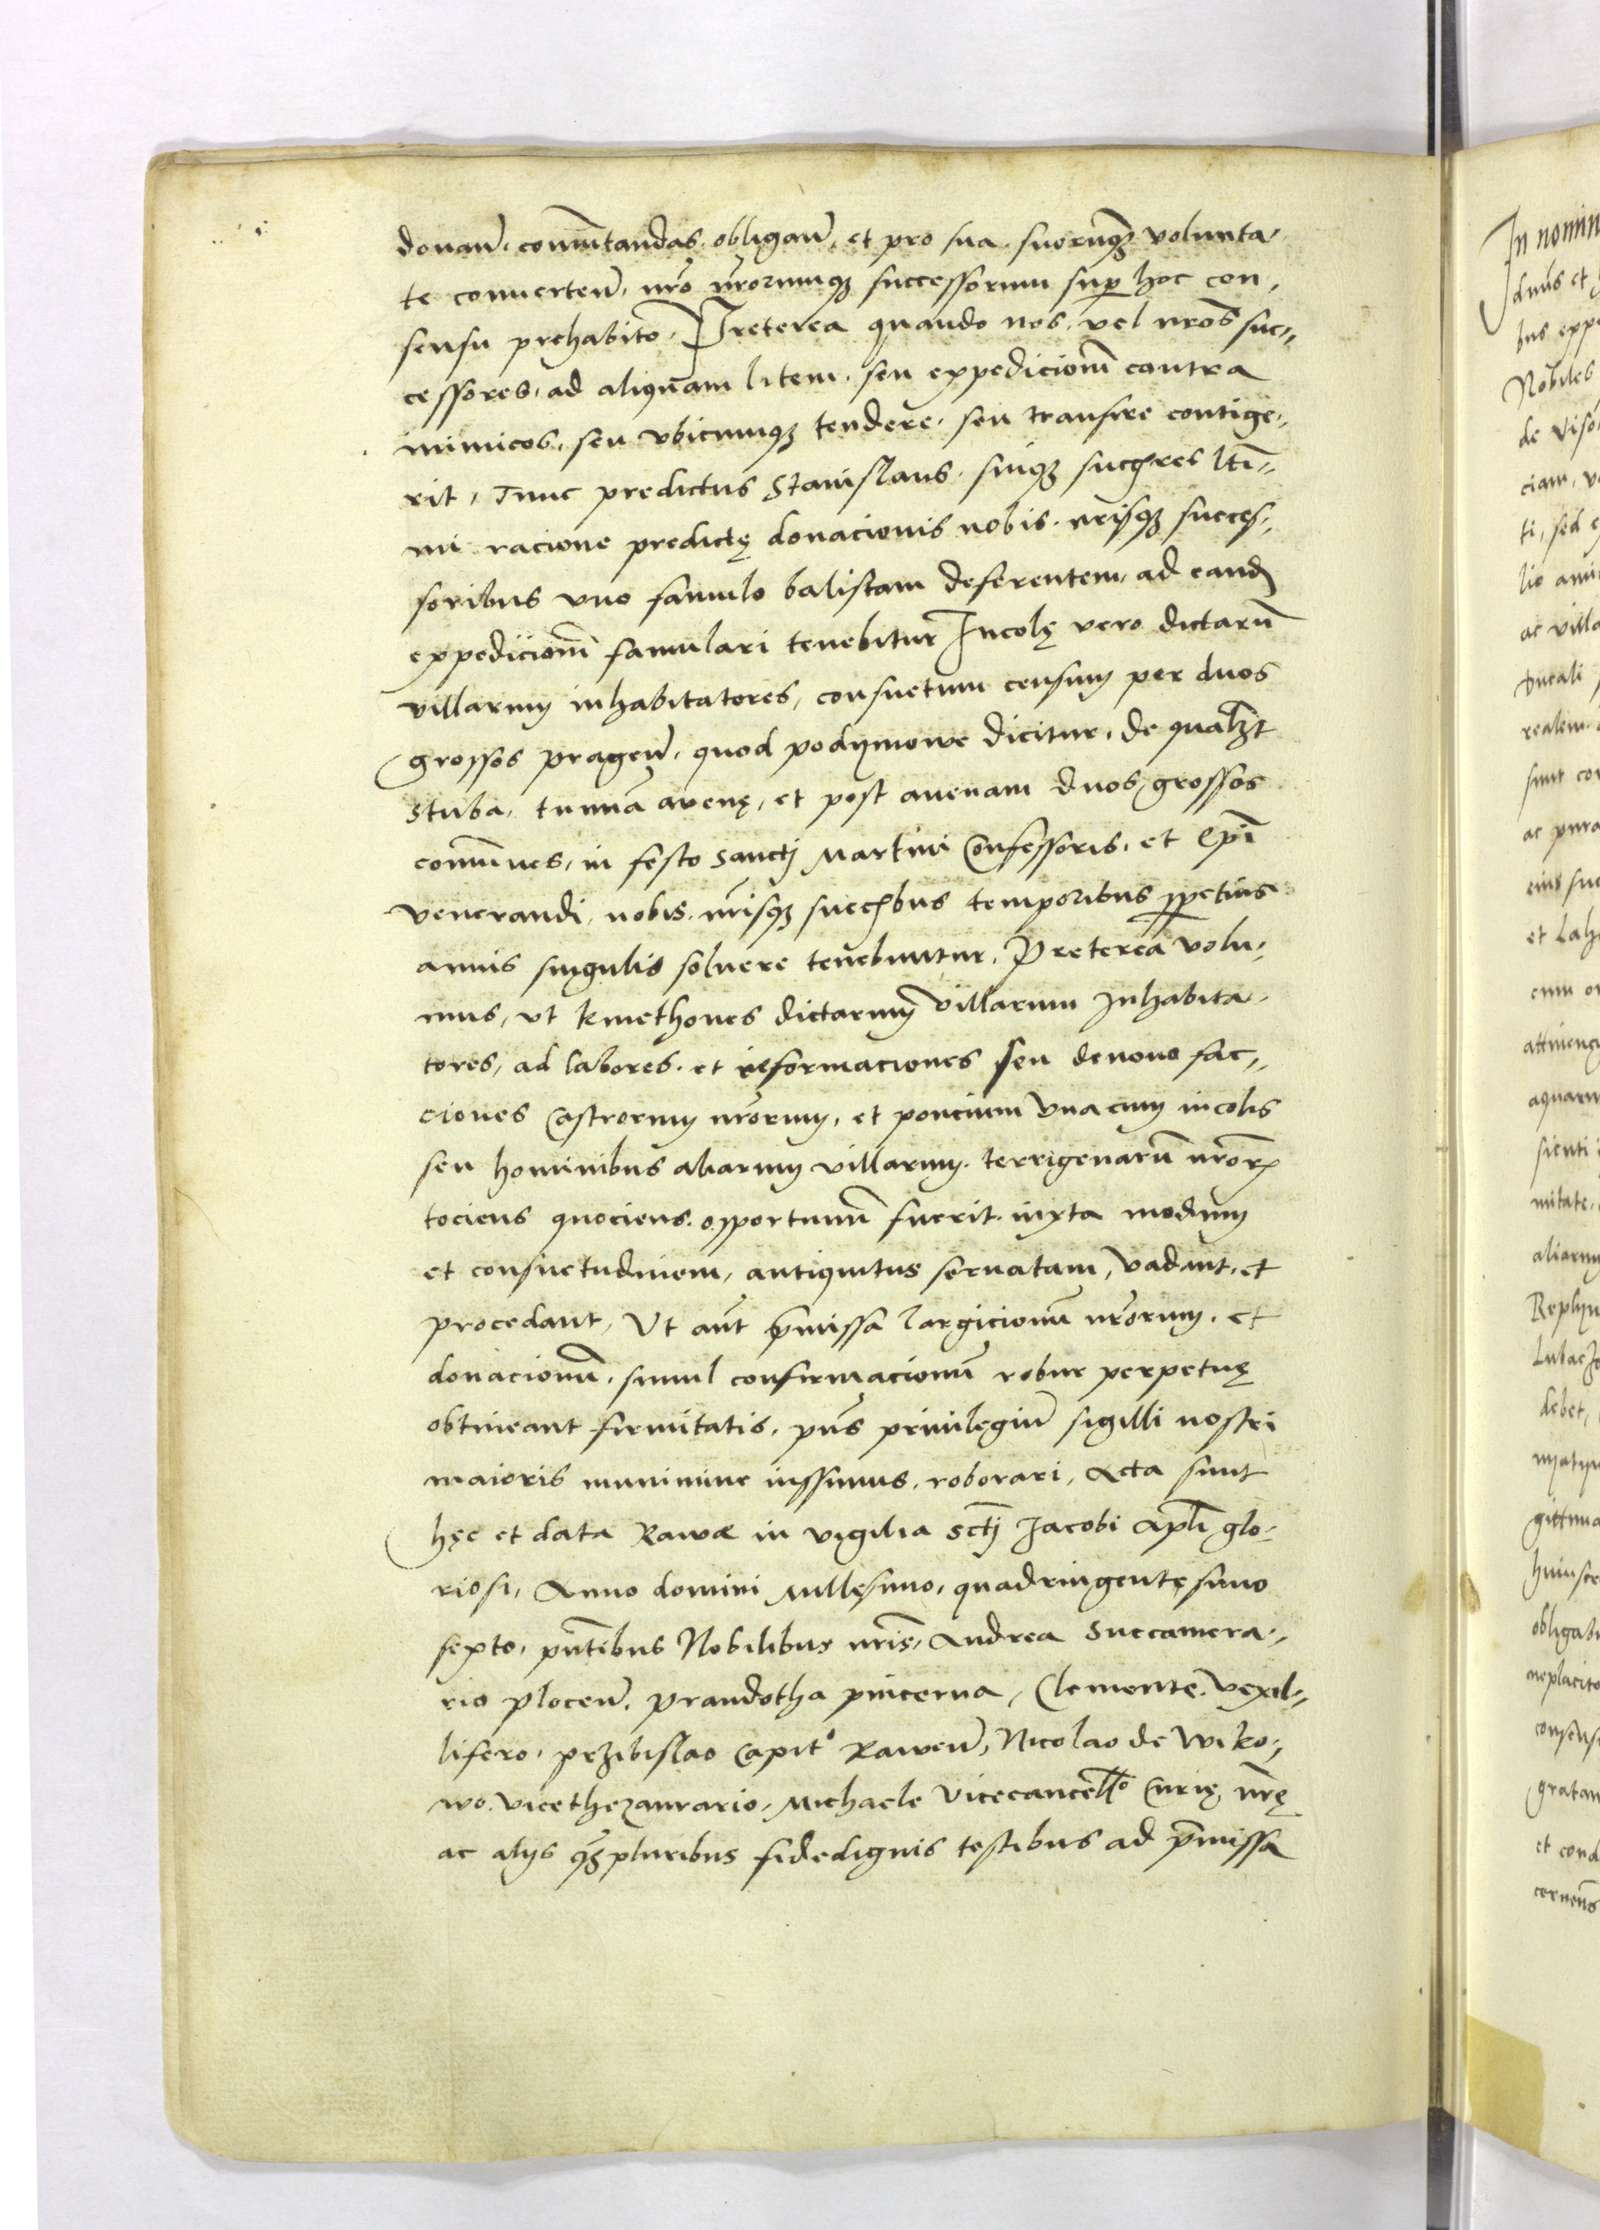 donanḋ. comutandas. obliganḋ, et pro sua suorumqꝫ volunta-
te conuertenḋ. nro nrorumqꝫ successorum sup hoc con-
sensu prehabito. Preterea quando nos, vel nros suc-
cessores, ad aliquam litem, seu expedicionē contra
inimicos, seu vbicumqꝫ tendere, seu transire contige-
rit, Tunc predictus Stanislaus, suiqꝫ succres ltī-
mi racione predictę donacionis nobis. nrisqꝫ succes-
soribus vno famulo balistam deferentem, ad eandē
expedicionē famulari tenebitur Incolę vero dictarū
villarum inhabitatores, consuetum censum per duos
grossos pragen̄. quod podymowe dicitur, de qualꝫt
Stuba, tunnā avenę, et post auenam duos grossos
comūnes, in festo Sanctj Martini Confessoris, et Epī
venerandi, nobis. nrīsqꝫ succ̄bus temporibus ꝑpetuis
annis singulis soluere tenebuntur. Preterea volu-
mus, vt kmethones dictarum villarum inhabita-
tores, ad labores. et reformaciones seu denouo fac-
ciones Castrorum nrōrum, et poncium vna cum incolis
seu hominibus aliarum villarum. terrigenarū nrōrꝝ
tociens quociens. opportunū fuerit. iuxta modum
et consuetudinem, antiquitus seruatam, vadant, et
procedant, Vt aut̄ p̄missa largicionū nrōrum, et
donacionū, simul confirmacionū robur perpetuę
obtineant firmitatis, pn̄s priuilegiū sigilli nostri
maioris munimine iussimus, roborari, Acta sunt
hęc et data Rawæ in vigilia sctj Jacobi Aplī glo-
riosi, Anno domini Millesimo, quadringentesimo
sexto, pn̄tibus Nobilibus nrīs, Andrea Succamera-
rio plocen̄. Prandotha pincerna, Clemente, vexil-
lifero, przibislao Capit° Rawen̄, Nicolao de Wiko-
wo. vicethezaurario, Michaele Vicecancell° Curię nrę
ac alijs qꝫpluribus fidedignis testibus ad p̄missa